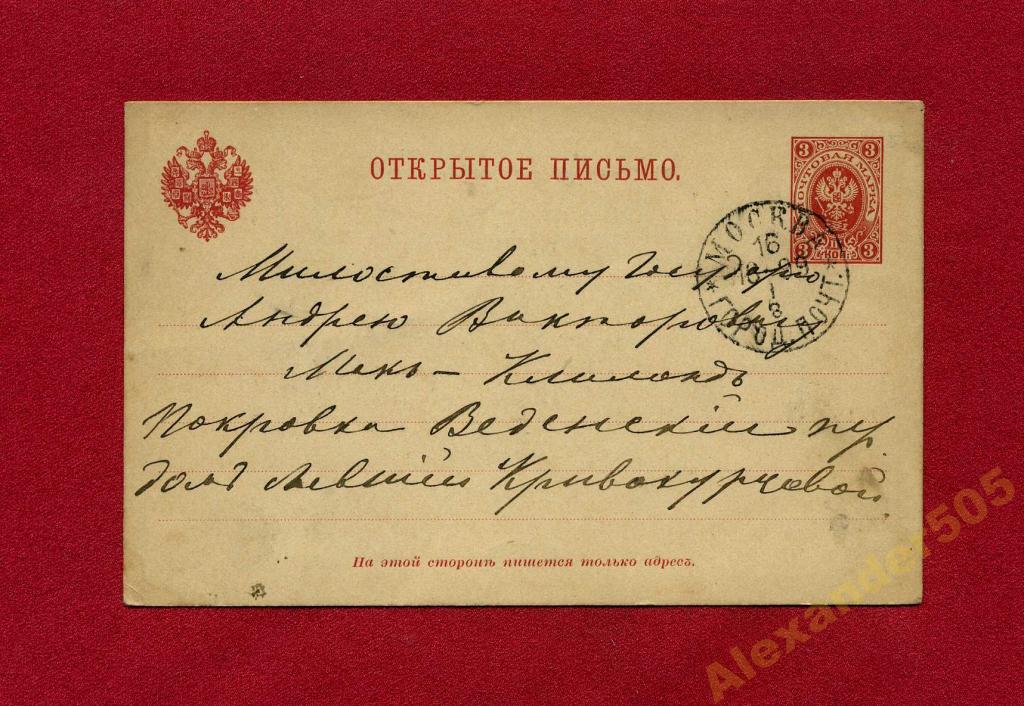 ОТКРЫТОЕ ПИСЬМО.
3 3
ПОЧТОВАЯ МАРКА
3 КОП. 3
МОСКВА
16
1
ГОРОД. ПОЧТ.
Милостивому Государю
Андрею Викторовичу
Макъ – Клиландъ
Покровка Веденскій пер
домъ бывшій Кривохурцевой
На этой сторонѣ пишется только адресъ.
Alexander505